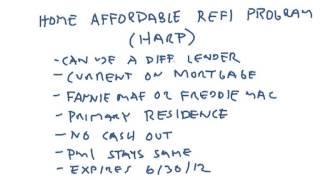 HOME AFFORDABLE REFI PROGRAM
(HARP)
- CAN USE A DIFF. LENDER
- CURRENT ON MORTGAGE
- FANNIE MAE OR FREDDIE MAC
- PRIMARY RESIDENCE
- NO CASH OUT
- PMI STAYS SAME
- EXPIRES 6/30/12